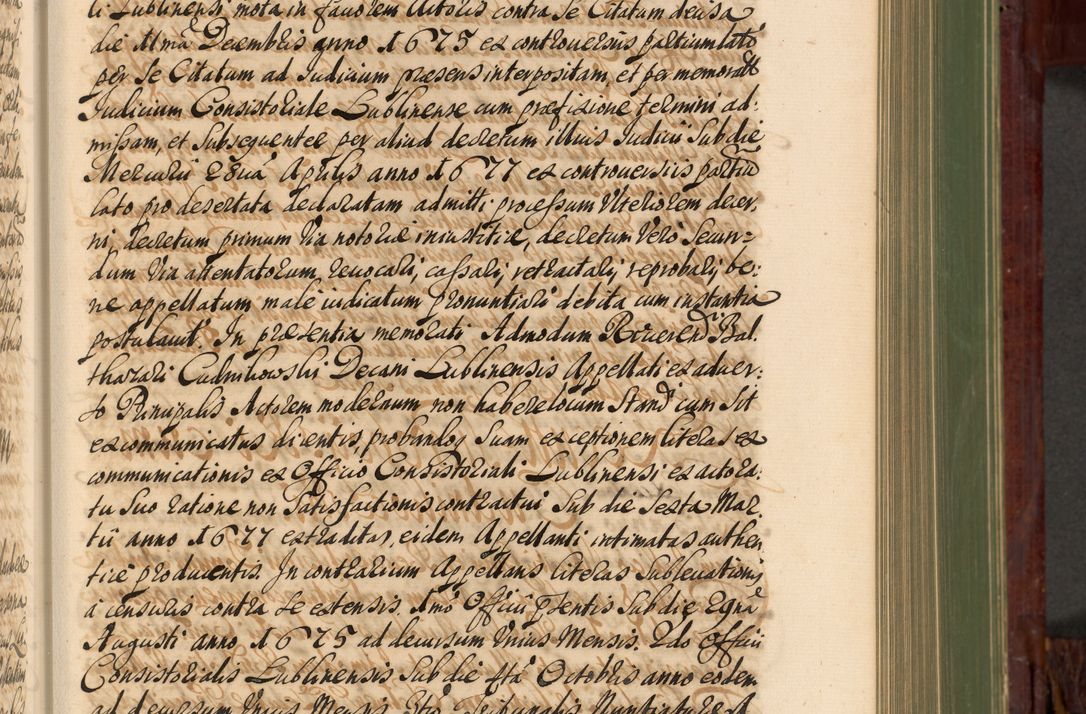 li Lublinensi mota in favorem Actoris contra se Citatum decisa
die 11ma Decembris anno 1675 ex controversiis partium lato
per se Citatum ad Judicium præsens interpositam, et per memoratũ
Judicium Consistoriale Lublinense cum præfixione termini ad-
missam, et subsequenter per aliud decretum illius Judicii sub die
Mercurii 28va Aprilis anno 1677 ex controversiis partiũ
lato pro desertata declaratam admitti processum ulteriorem decer-
ni, decretum primum via notoriæ iniustitiæ, decretum vero secun-
dum via attentatorum, revocari, cassari, retractari, reprobari, be-
ne appellatum male iudicatum pronuntiari debita cum instantia
postulavit. In præsentia memorati Admodum Rverendi Bal-
tharari Cudnikowski Decani Lublinensis Appellati ex adver-
so Principalis Actorem modernum non habere locum standi cum sit
excommunicatus dicentis, probandoq suam exceptionem literas ex
communicationis ex Officio Consistoriali Lublinensi ex actora-
tu suo ratione non satisfactionis contractui sub die sexta Mar-
tii anno 1677 extraditas, eidem Appellanti intimatas authen
tice producentis. In contrarium Appellans literas sublevationis
a censuris contra se extensis. Imo Officii pñtis sub die 29na
Augusti anno 1675 ad decursum unius Mensis. 2do Officii
Consistorialis Lublinensis sub die 4ta Octobris anno eodem
ad decursum unius Mensis 3tio Tribunalis Nuntiaturæ A